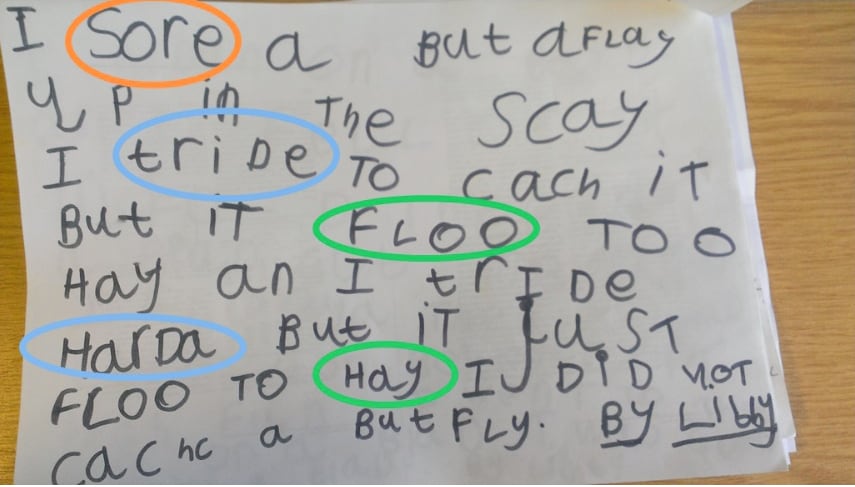 I Sore a But aFLay
Up in The Scay
I triDe TO cach iT
But iT FLOO TOO
Hay an I trIDe
HarDa But iT JUST
FLOO TO Hay I DiD NOT
cachc a But FLy. By Libby